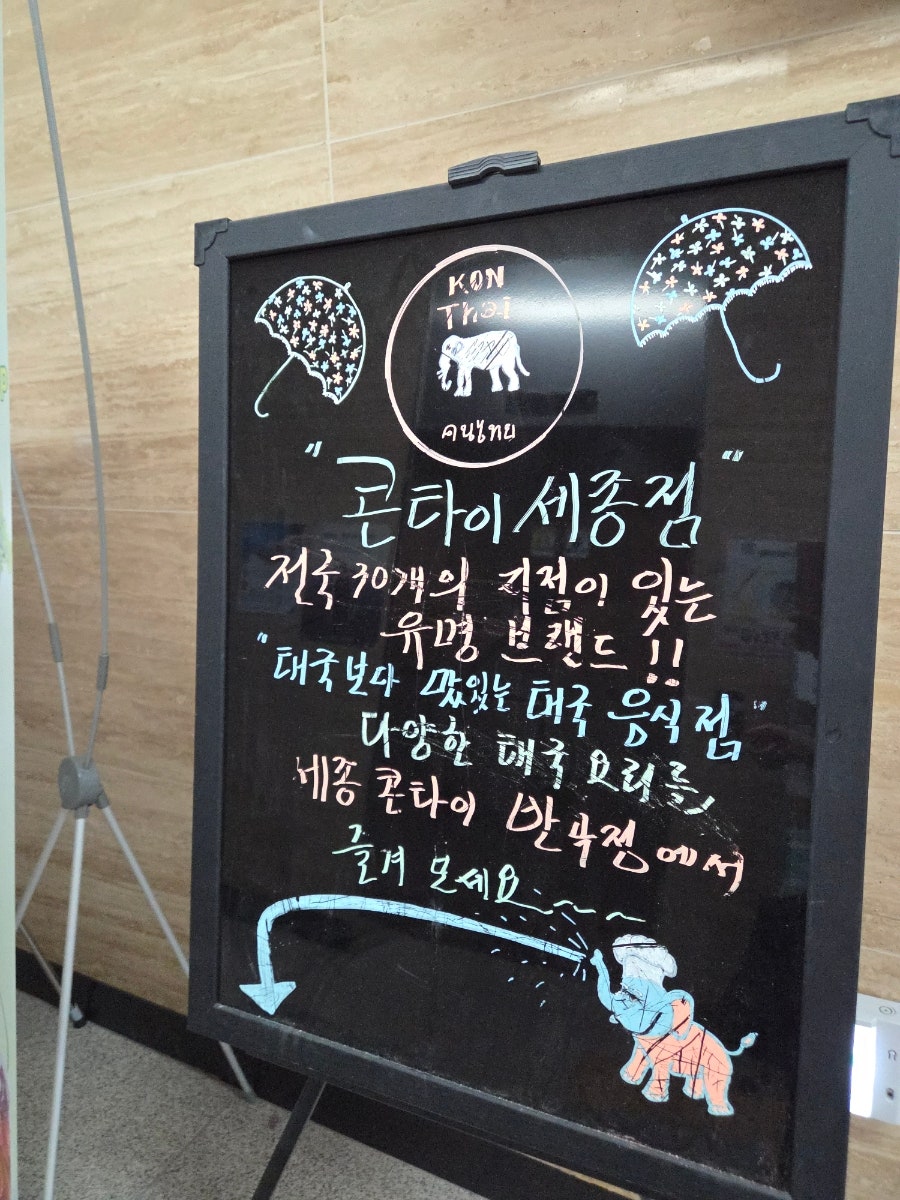 KON
Thai
คนไทย
"콘타이 세종점"
전국 30개의 직점이 있는
유명 브랜드!!
"태국보다 맛있는 태국 음식점"
다양한 태국 요리를,
세종 콘타이 반곡점에서
즐겨 보세요~~~